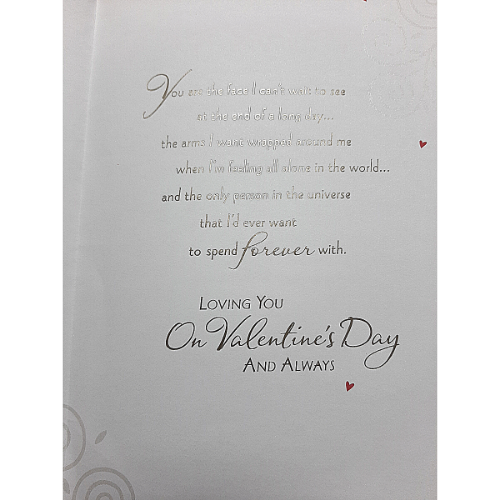 You are the face I can't wait to see
at the end of a long day...
the arms I want wrapped around me
when I'm feeling all alone in the world...
and the only person in the universe
that I'd ever want
to spend forever with.
LOVING YOU
On Valentine's Day
AND ALWAYS